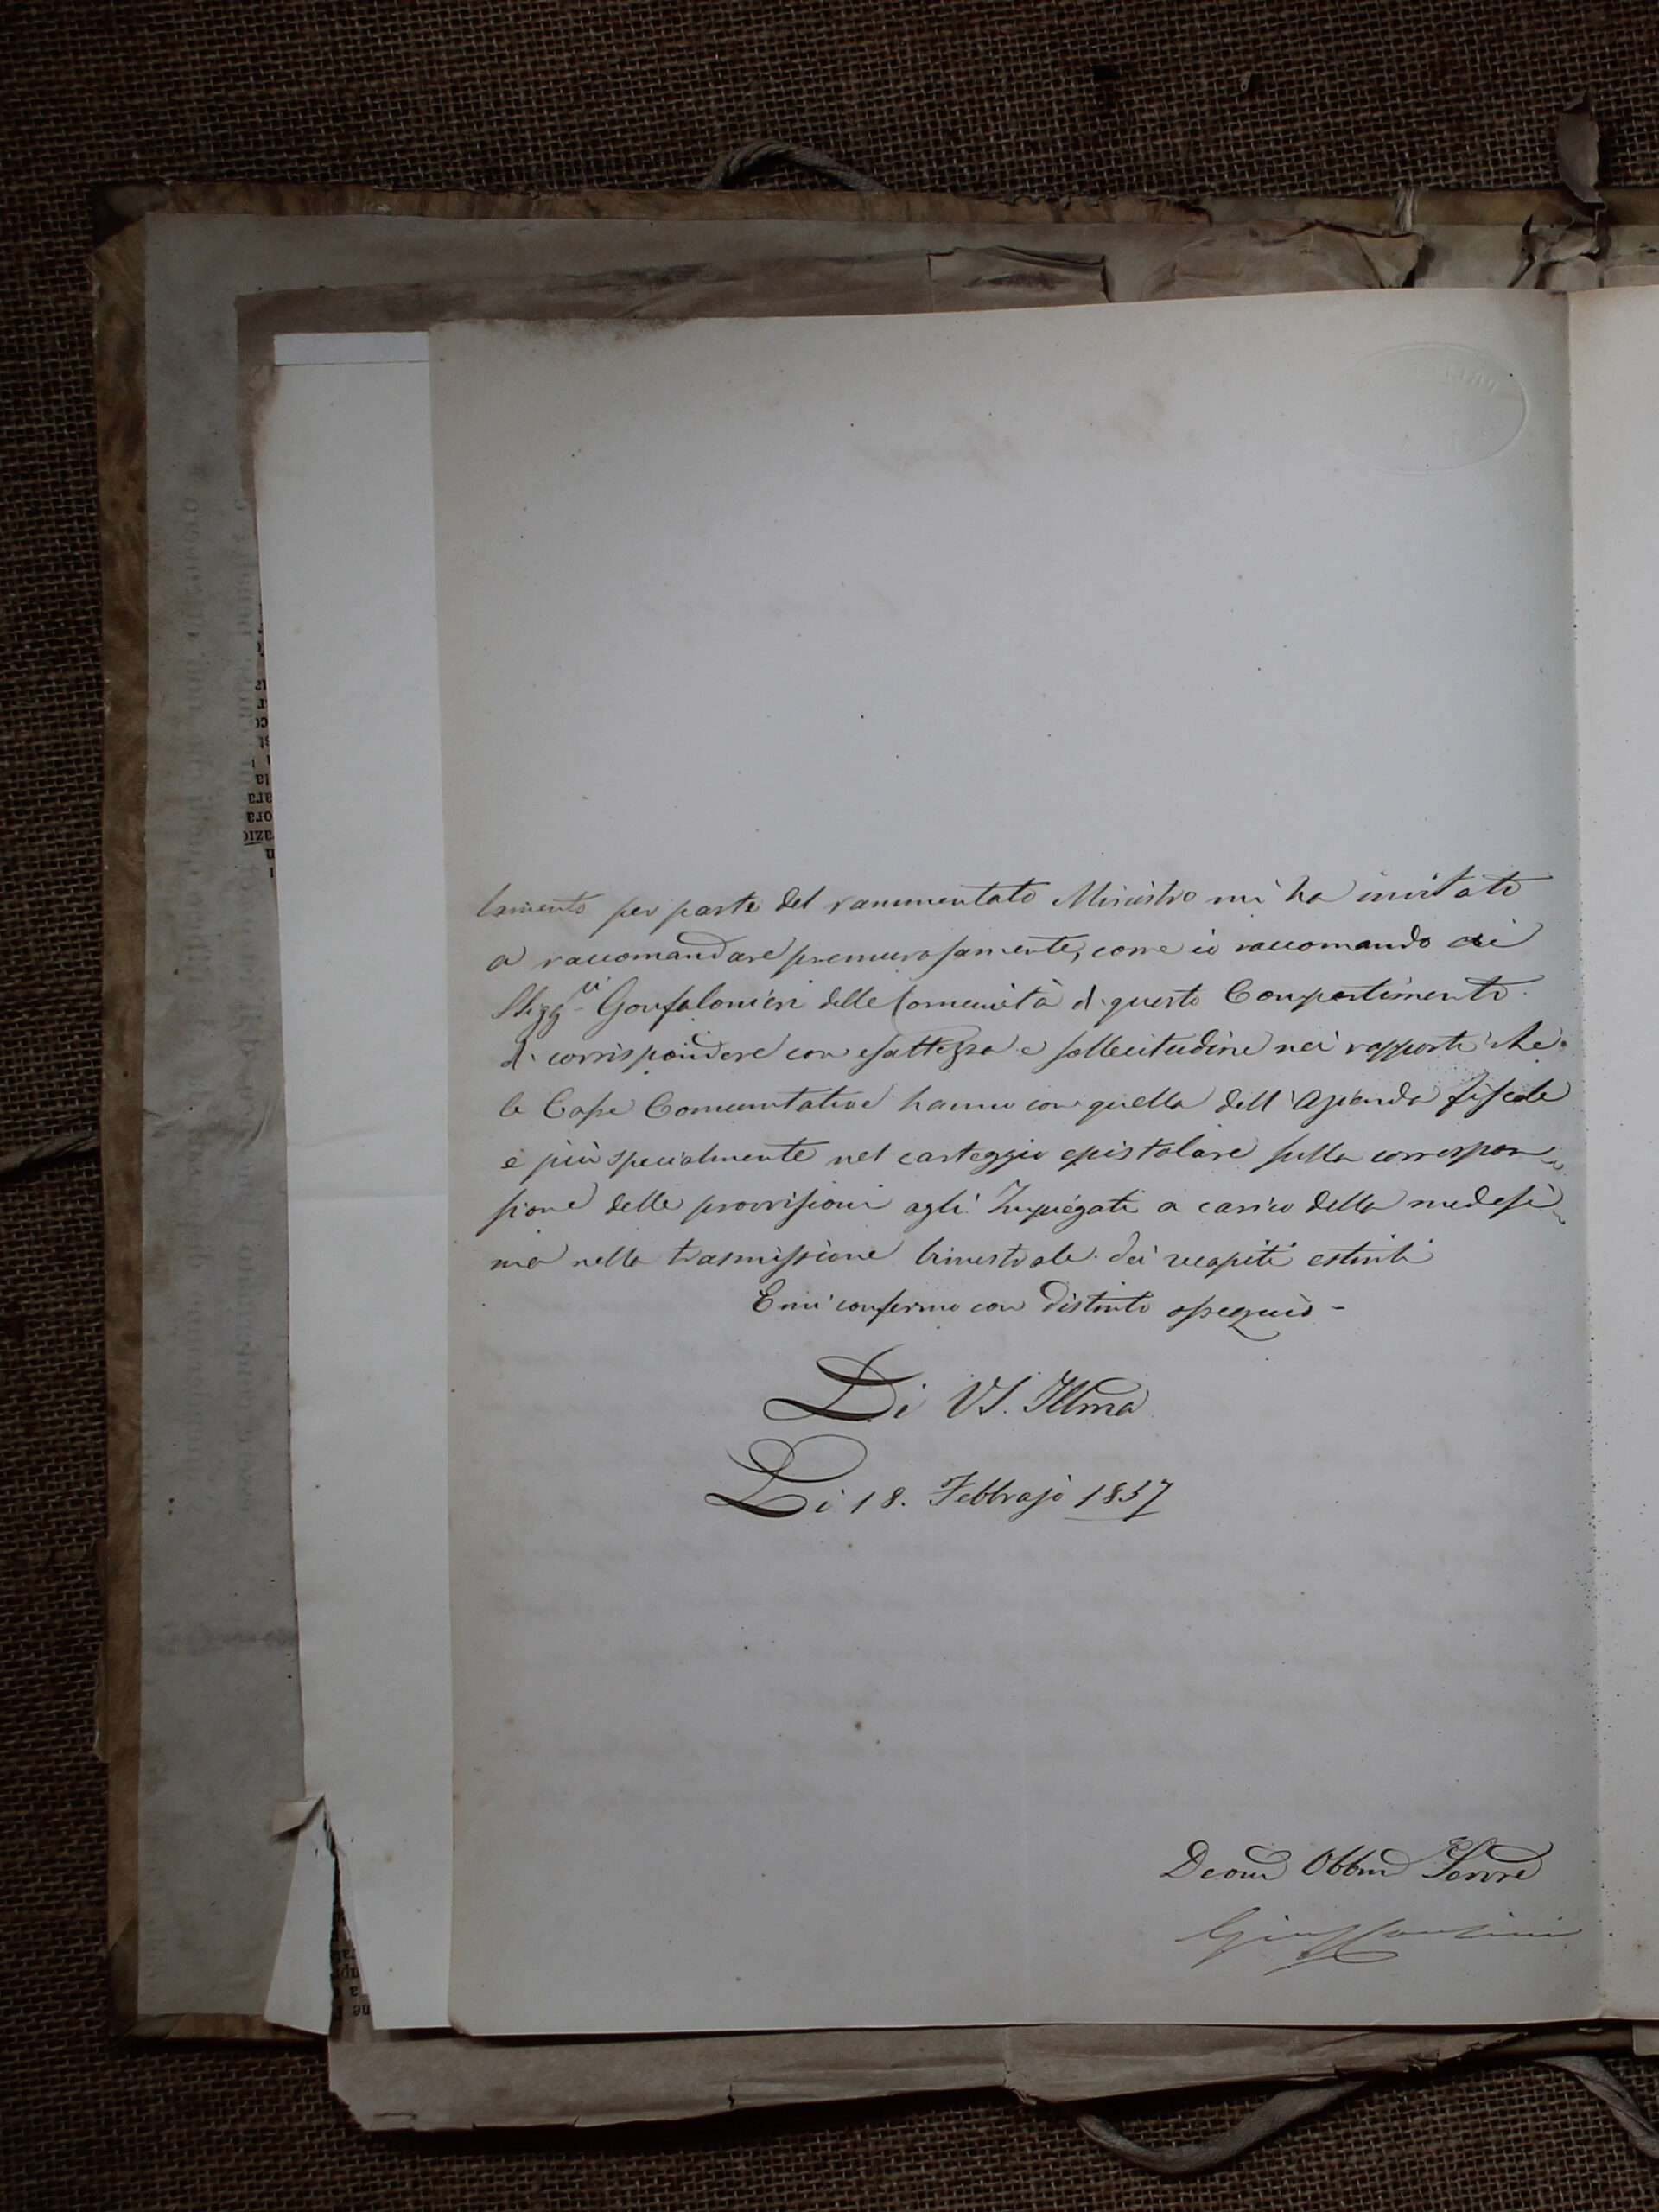 lamento per parte del rammentato Ministro mi ha invitato
a raccomandare premurosamente, come io raccomando ai
SSigg.ri Gonfalonieri delle Comunità di questo Compartimento
di corrispondere con esattezza e sollecitudine nei rapporti che
le Casse Comunitative hanno con quella dell'Azienda fiscale
e più specialmente nel carteggio epistolare sulla correspon=
sione delle provvisioni agli Impiegati a carico della medesi=
ma nella trasmissione trimestrale dei recapiti estinti
E mi confermo con distinto ossequio -
Di VS. Illma
Li 18. Febbrajo 1837
Devmo Obbmo Servre